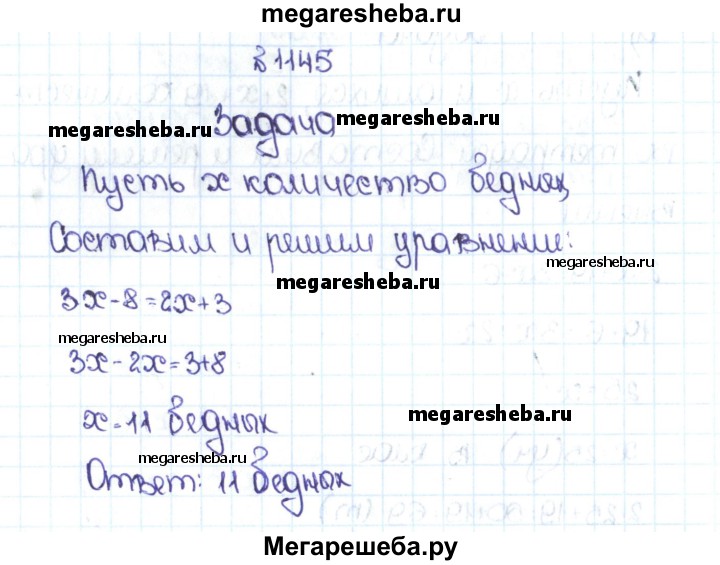 megaresheba.ru
№1145
megaresheba.ru Задача megaresheba.ru
Пусть x количество бедных,
Составим и решим уравнение:
megaresheba.ru
megaresheba.ru
3x-8=2x+3
megaresheba.ru
3x-2x=3+8
x=11 бедных
megaresheba.ru
megaresheba.ru
Ответ: 11 бедных
Мегарешеба.ру